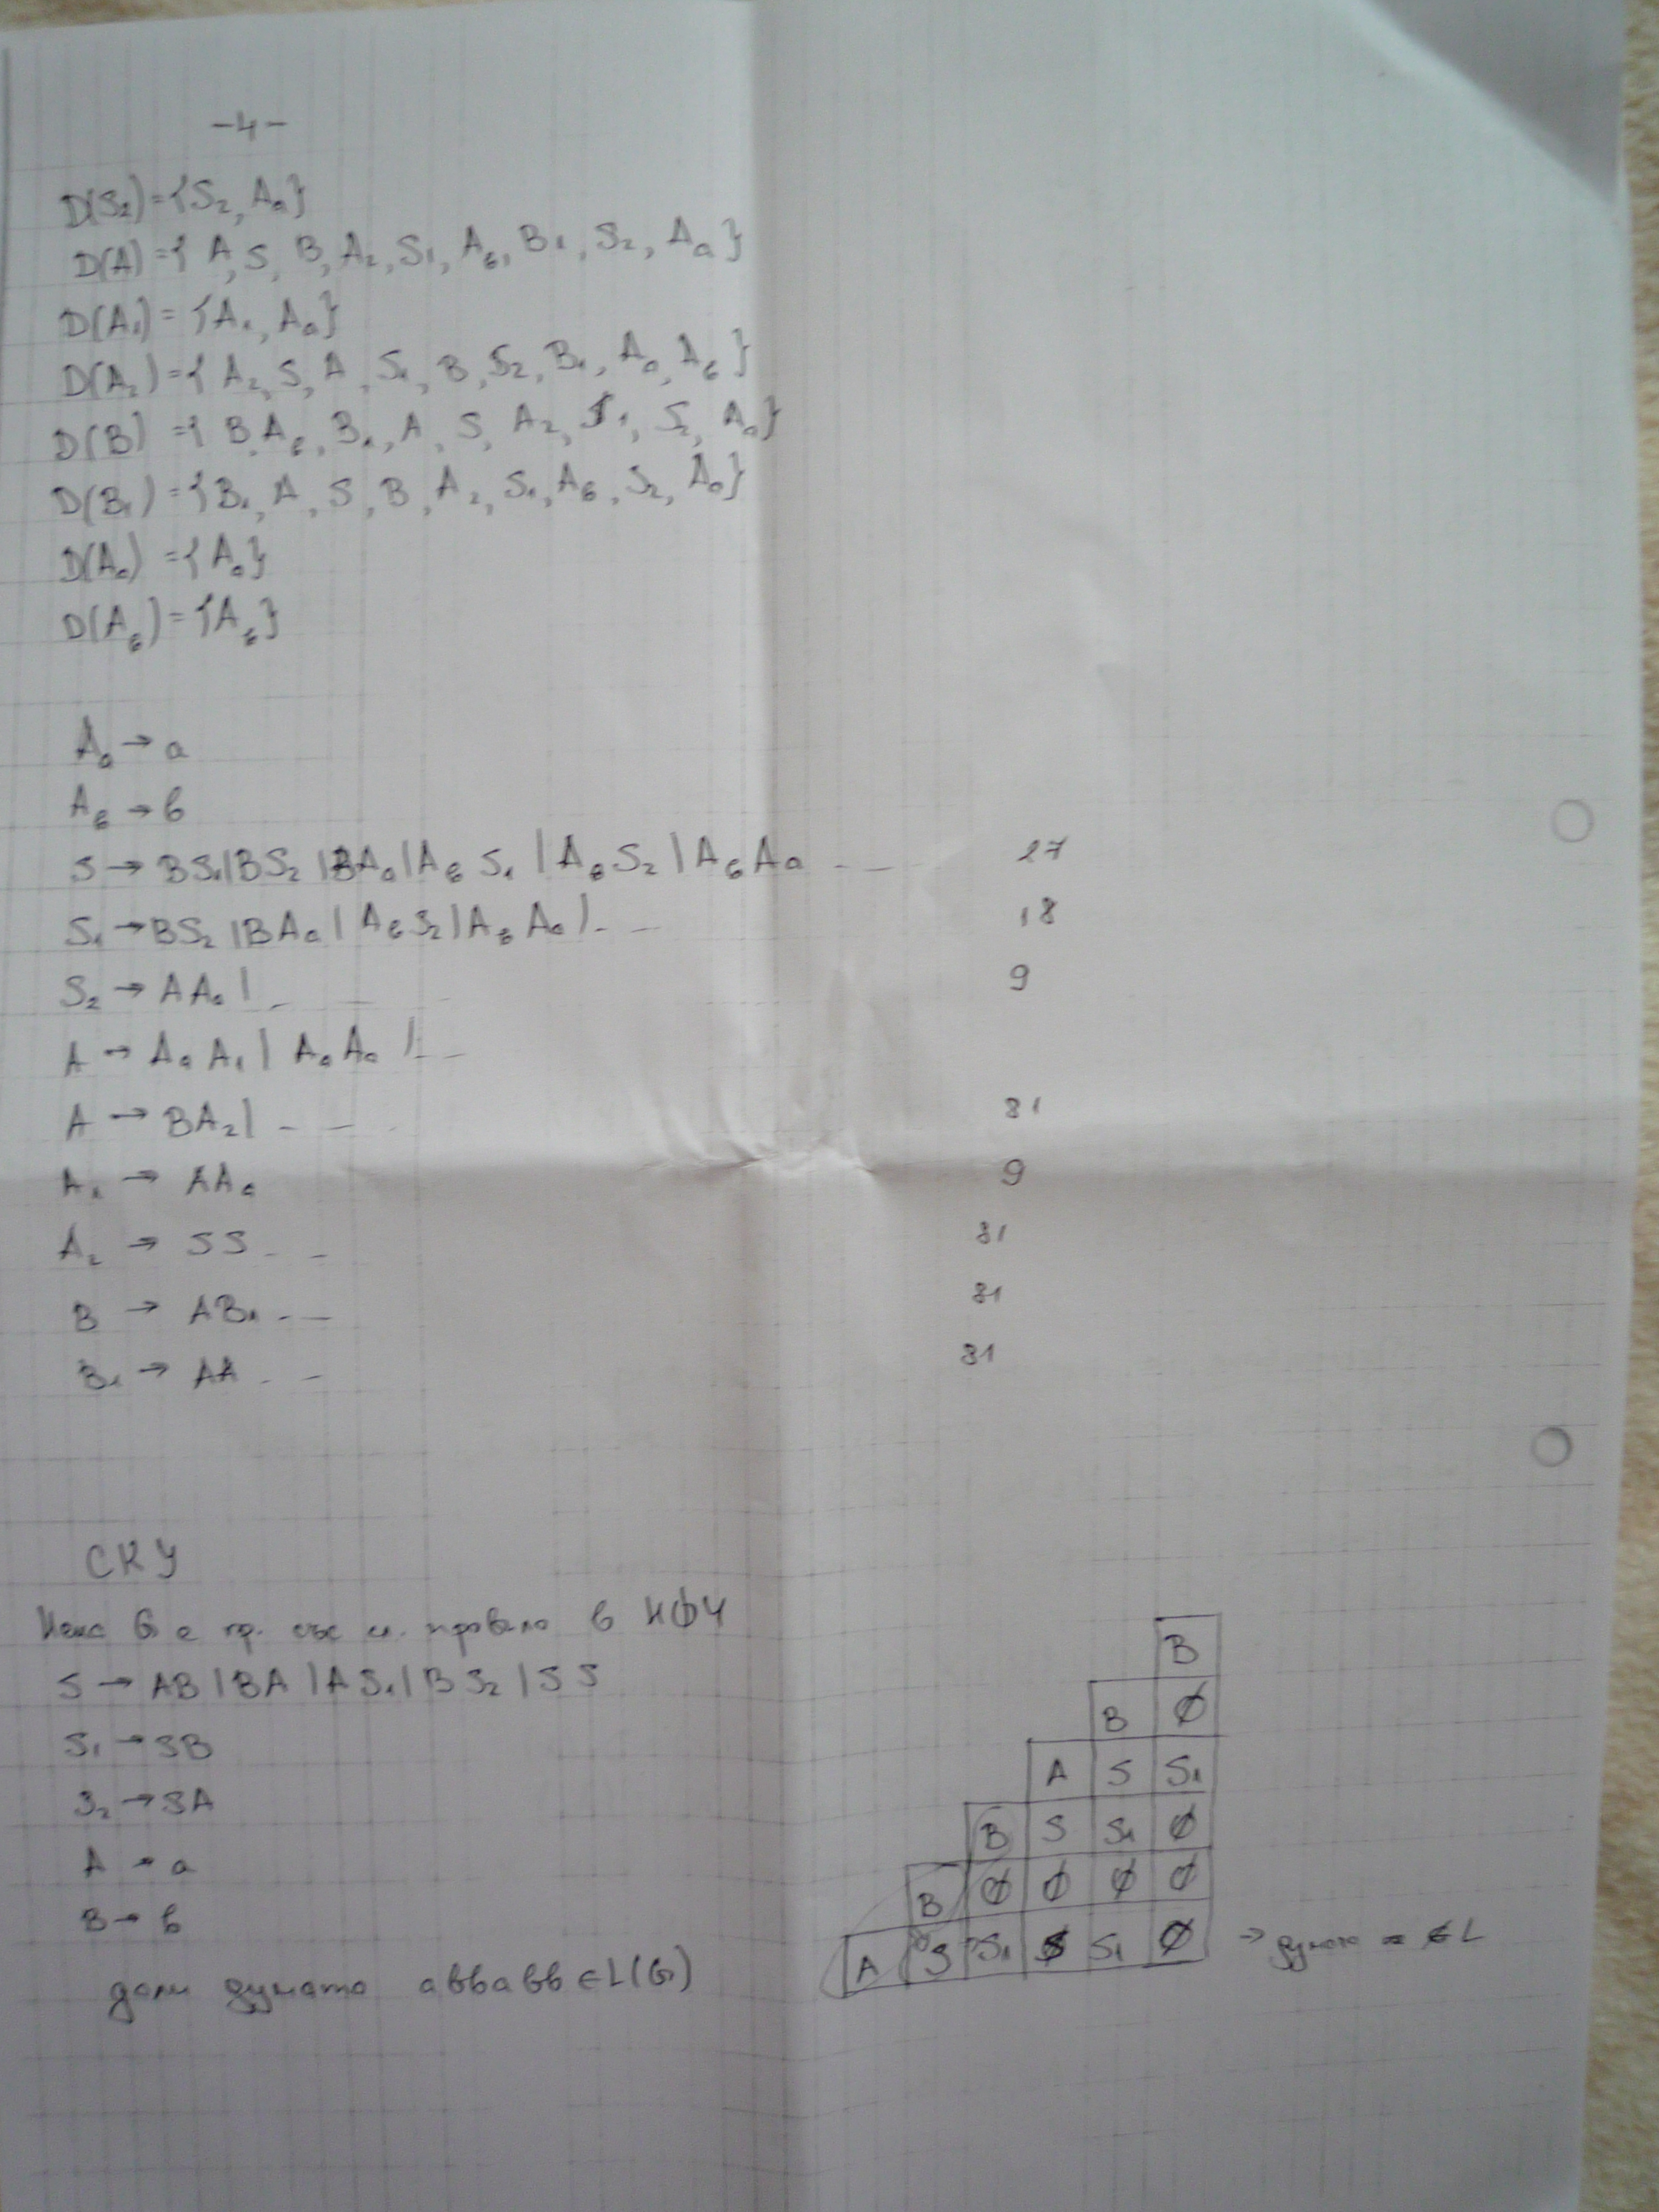 -4-
D(S₂)={S₂, Aₐ}
D(A)={A, S, B, A₂, S₁, A_б, B₁, S₂, Aₐ}
D(A₁)={A₁, Aₐ}
D(A₂)={A₂, S, A, S₁, B, S₂, B₁, Aₐ, A_б}
D(B)={B, A_б, B₁, A, S, A₂, S₁, S₂, Aₐ}
D(B₁)={B₁, A, S, B, A₂, S₁, A_б, S₂, Aₐ}
D(Aₐ)={Aₐ}
D(A_б)={A_б}
Aₐ → a
A_б → б
S → BS₁|BS₂|BAₐ|A_б S₁|A_б S₂|A_б Aₐ --- 27
S₁ → BS₂|BAₐ|A_б S₂|A_б Aₐ|-- 18
S₂ → AAₐ|--- 9
A → AₐA₁|AₐAₐ|--
A → BA₂|--- 81
A₁ → AAₐ 9
A₂ → SS -- 81
B → AB₁ -- 81
B₁ → AA -- 81
СКУ
Нека G е гр. със сл. правила в НФЧ
S → AB|BA|AS₁|BS₂|SS
S₁ → SB
S₂ → SA
A → a
B → б
дали думата аббабб ∈ L(G)
B
B ∅
A S S₁
B S S₁ ∅
B ∅ ∅ ∅ ∅
A S S₁ S S₁ ∅ → ∉ L